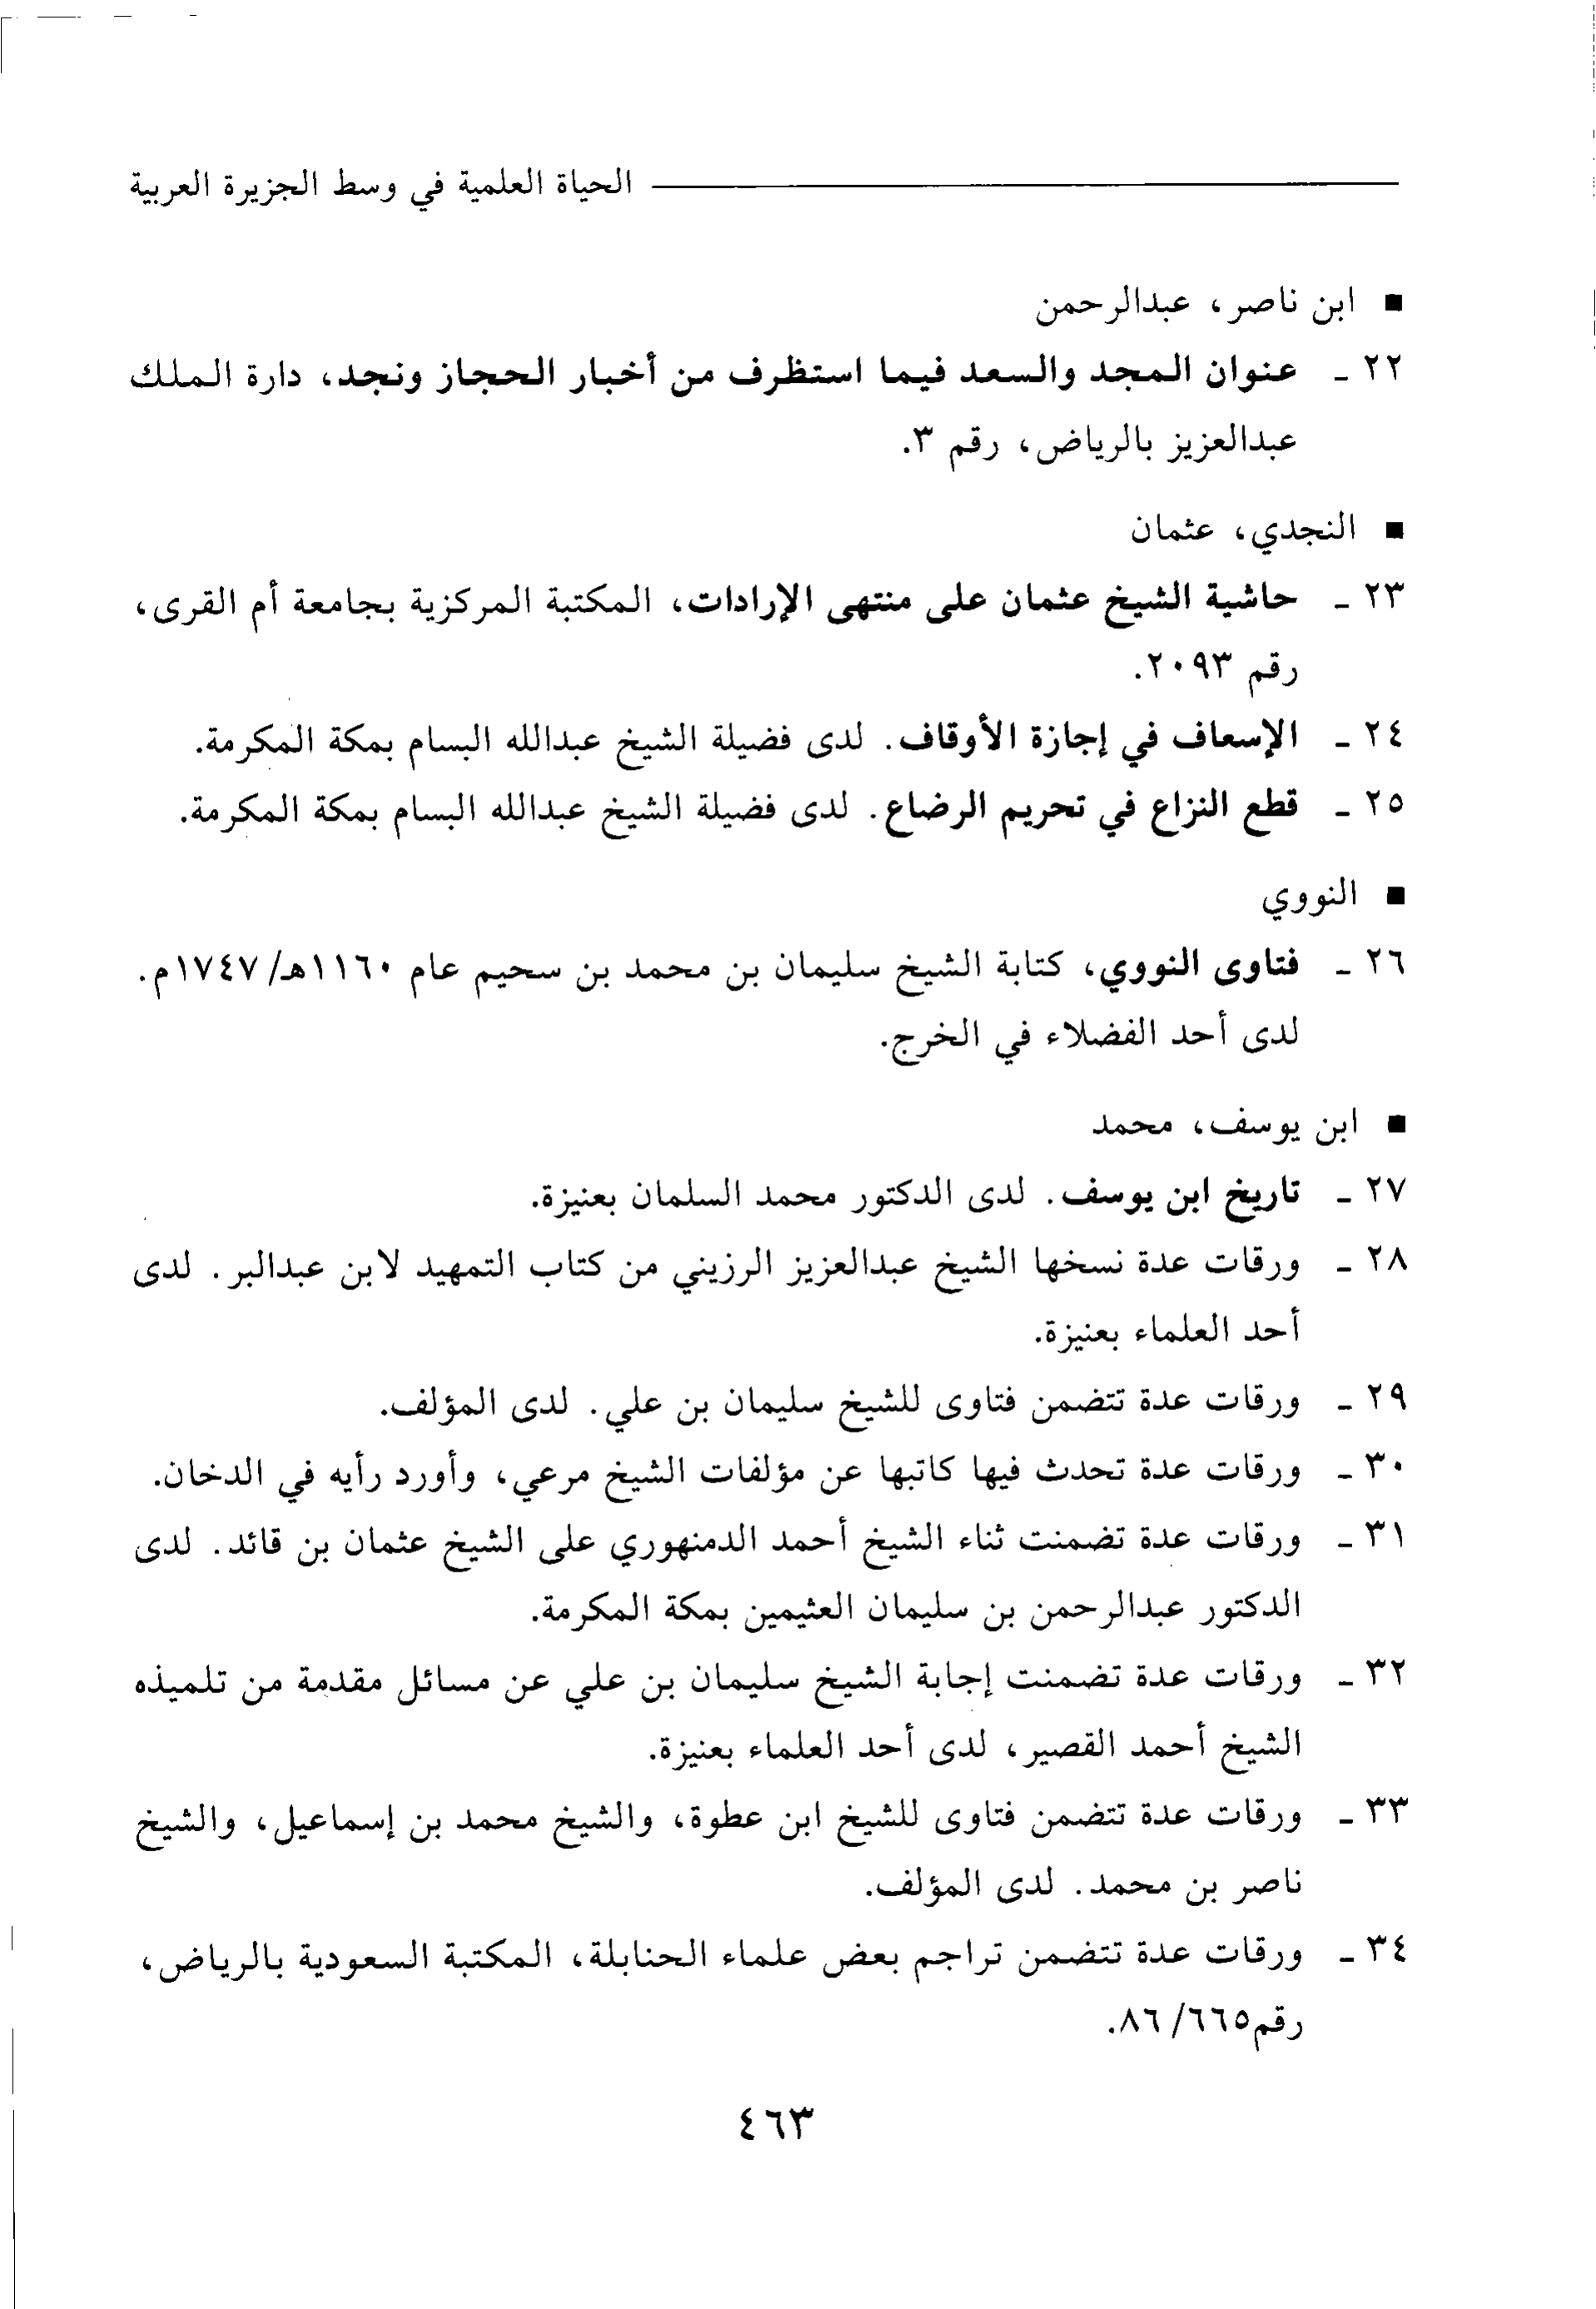 الحياة العلمية في وسط الجزيرة العربية
■ ابن ناصر، عبدالرحمن
٢٢ ـ عنوان المجد والسعد فيما استظرف من أخبار الحجاز ونجد، دارة الملك
عبدالعزيز بالرياض، رقم ٣.
■ النجدي، عثمان
٢٣ ـ حاشية الشيخ عثمان على منتهى الإرادات، المكتبة المركزية بجامعة أم القرى،
رقم ٢٠٩٣.
٢٤ ـ الإسعاف في إجازة الأوقاف. لدى فضيلة الشيخ عبدالله البسام بمكة المكرمة.
٢٥ ـ قطع النزاع في تحريم الرضاع. لدى فضيلة الشيخ عبدالله البسام بمكة المكرمة.
■ النووي
٢٦ ـ فتاوى النووي، كتابة الشيخ سليمان بن محمد بن سحيم عام ١١٦٠هـ/ ١٧٤٧م.
لدى أحد الفضلاء في الخرج.
■ ابن يوسف، محمد
٢٧ ـ تاريخ ابن يوسف. لدى الدكتور محمد السلمان بعنيزة.
٢٨ ـ ورقات عدة نسخها الشيخ عبدالعزيز الرزيني من كتاب التمهيد لابن عبدالبر. لدى
أحد العلماء بعنيزة.
٢٩ ـ ورقات عدة تتضمن فتاوى للشيخ سليمان بن علي. لدى المؤلف.
٣٠ ـ ورقات عدة تحدث فيها كاتبها عن مؤلفات الشيخ مرعي، وأورد رأيه في الدخان.
٣١ ـ ورقات عدة تضمنت ثناء الشيخ أحمد الدمنهوري على الشيخ عثمان بن قائد. لدى
الدكتور عبدالرحمن بن سليمان العثيمين بمكة المكرمة.
٣٢ ـ ورقات عدة تضمنت إجابة الشيخ سليمان بن علي عن مسائل مقدمة من تلميذه
الشيخ أحمد القصير، لدى أحد العلماء بعنيزة.
٣٣ ـ ورقات عدة تتضمن فتاوى للشيخ ابن عطوة، والشيخ محمد بن إسماعيل، والشيخ
ناصر بن محمد. لدى المؤلف.
٣٤ ـ ورقات عدة تتضمن تراجم بعض علماء الحنابلة، المكتبة السعودية بالرياض،
رقم٦٦٥/ ٨٦.
٤٦٣